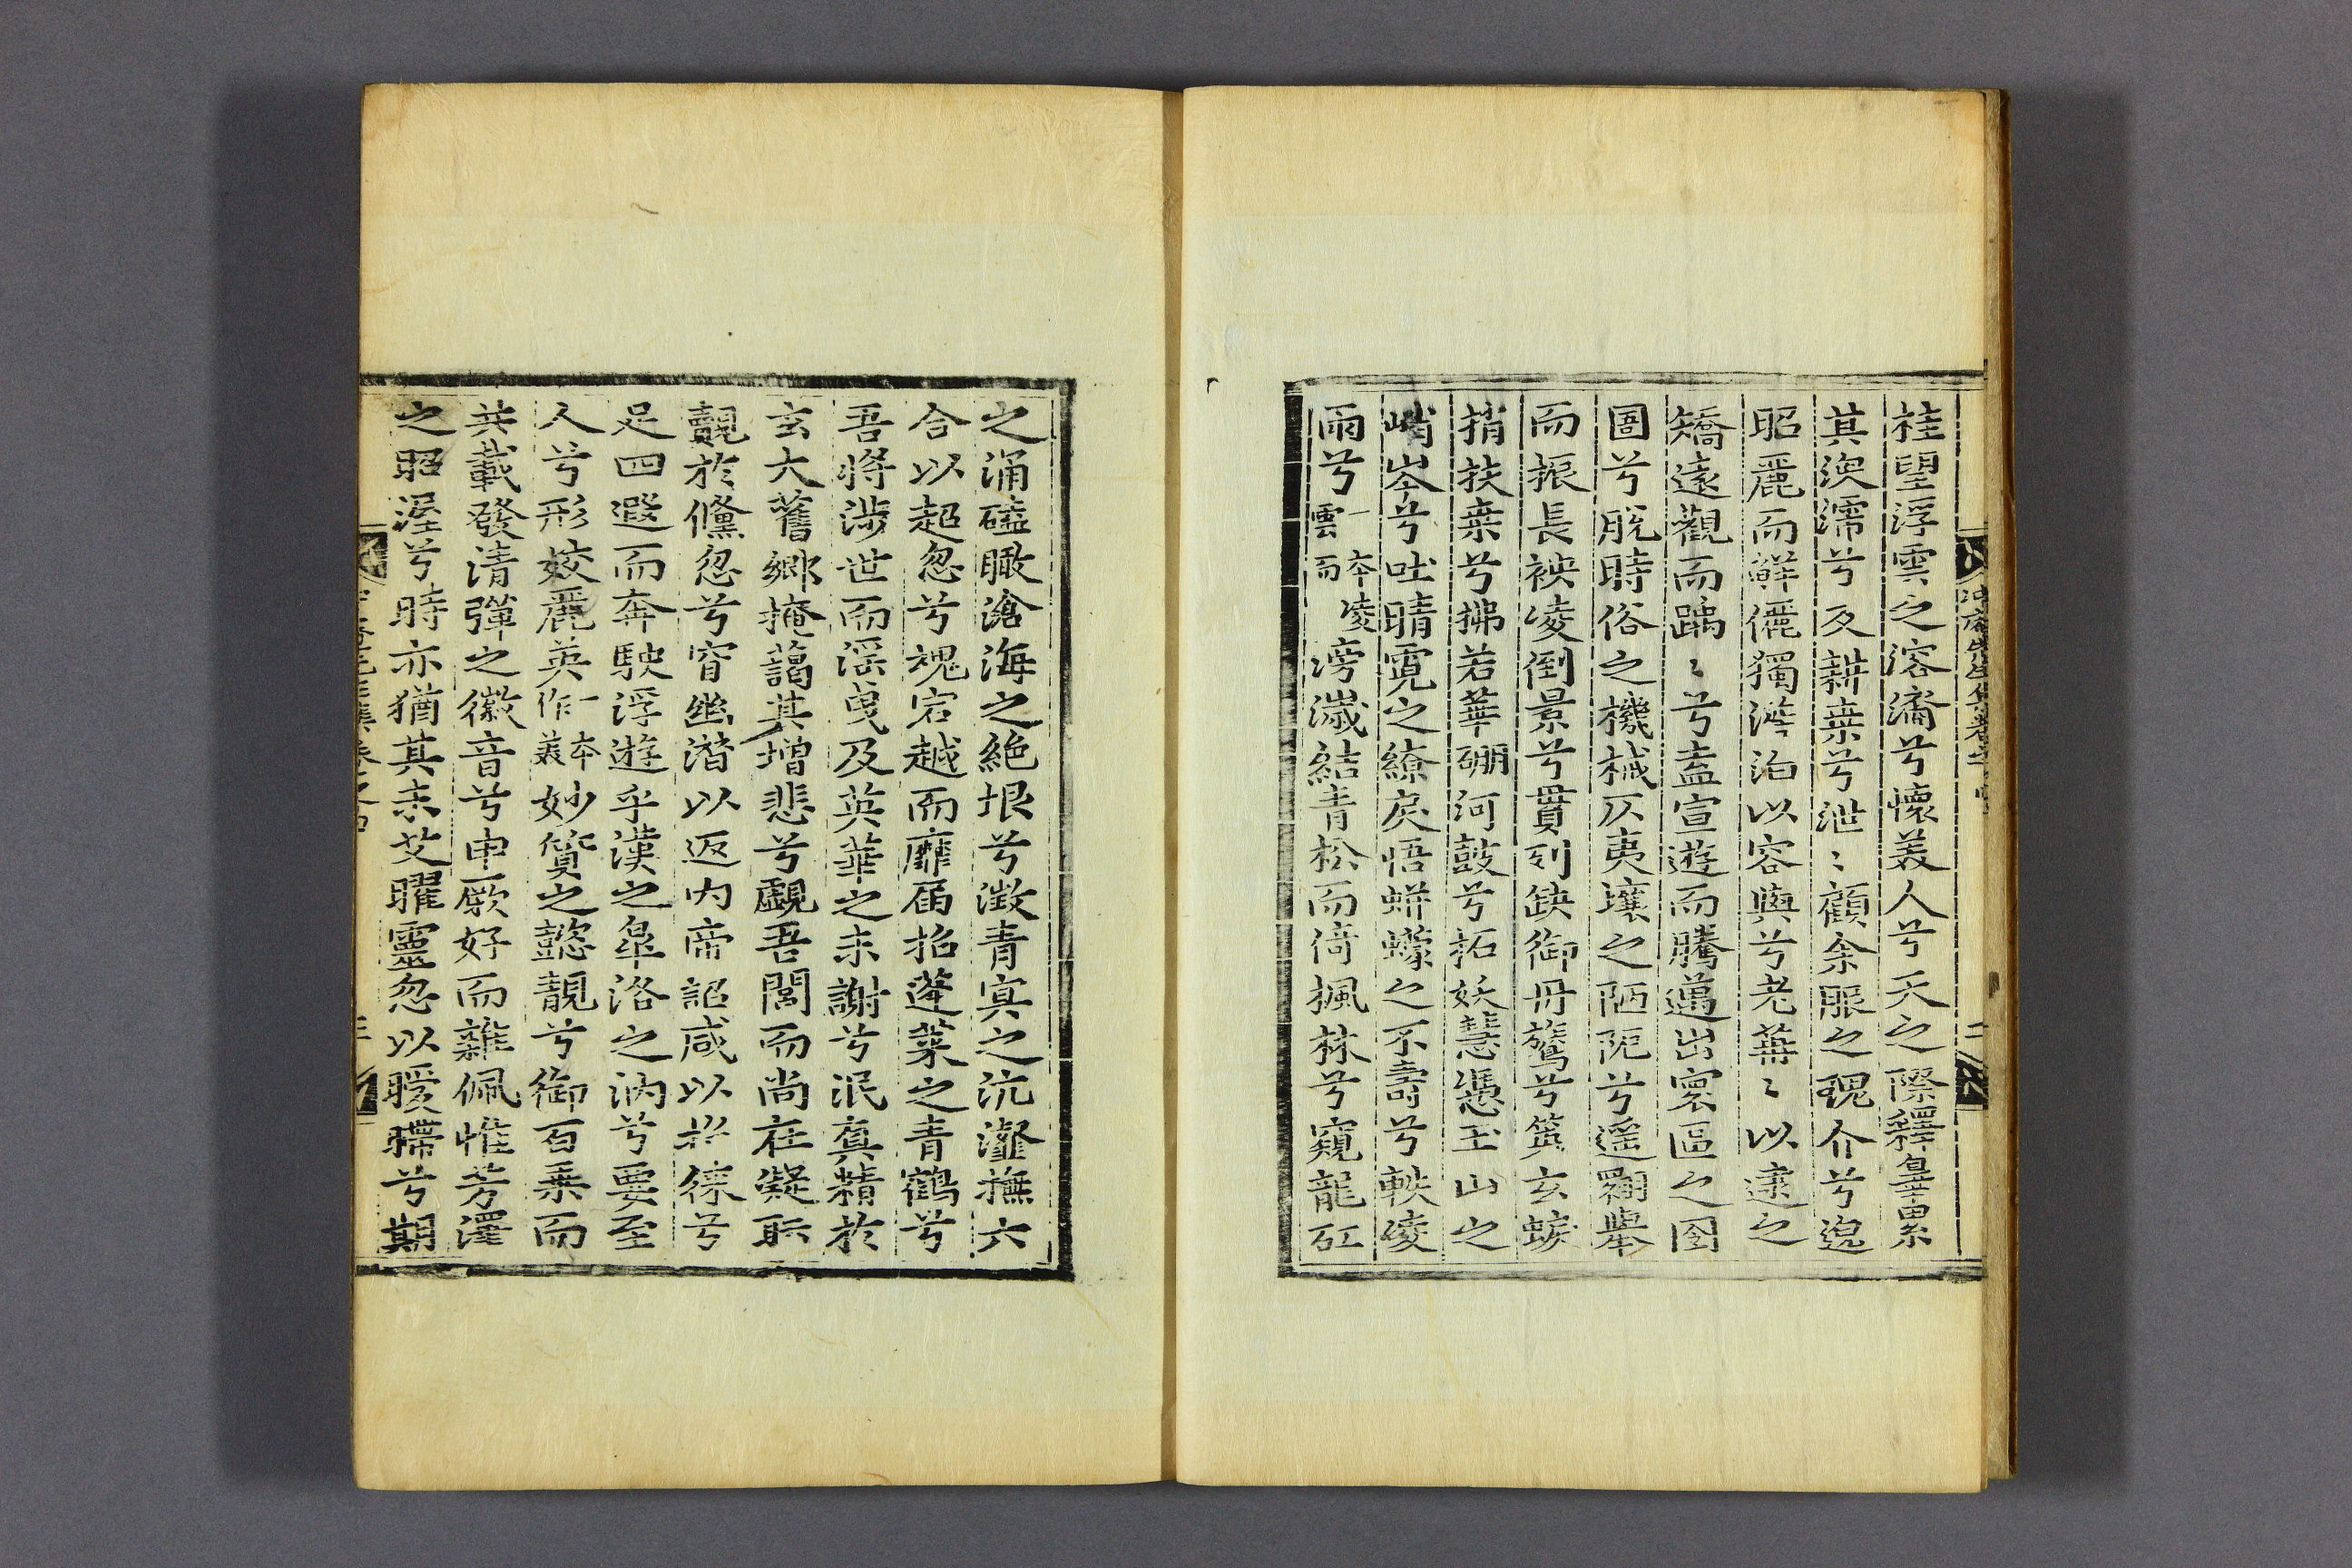 桂望浮雲之溶潏兮懷美人兮天之際釋塵累
其淟濡兮反耕桒兮泄〻顧余服之瑰介兮遑
昭麗而鮮儷獨游泊以容與兮老華〻以逮之
矯遠觀而踽〻兮盍宣遊而騰邁出寰區之囹
圄兮脫時俗之機械仄夷壤之陋阨兮遥翾舉
而振長袂凌倒景兮貫列缺御丹鸞兮策玄螭
捎扶桒兮拂若華硼河鼓兮拓妖彗憑玉山之
峭岑兮吐晴霓之繚戾悟蜉蠓之不壽兮軼凌
雨兮雲一本而凌滂濊結青松而倚楓林兮窺龍矼
之涌磕瞰滄海之絶垠兮澂青冥之沆瀣撫六
合以超忽兮魂宕越而靡屆招蓬萊之青鶴兮
吾將涉世而淫曳及英華之未謝兮泯真精於
玄大舊鄉掩藹其增悲兮覷吾閭而尚在凝眎
覿於儵忽兮窅幽潛以返内帝詔咸以招徠兮
足四遐而奔駛浮遊乎漢之皐洛之汭兮要至
人兮形姣麗英一本作美妙質之懿靚兮御百乘而
共載發清彈之徽音兮申厥好而雜佩惟芳澤
之昭渥兮時亦猶其未艾曜靈忽以曖曃兮期